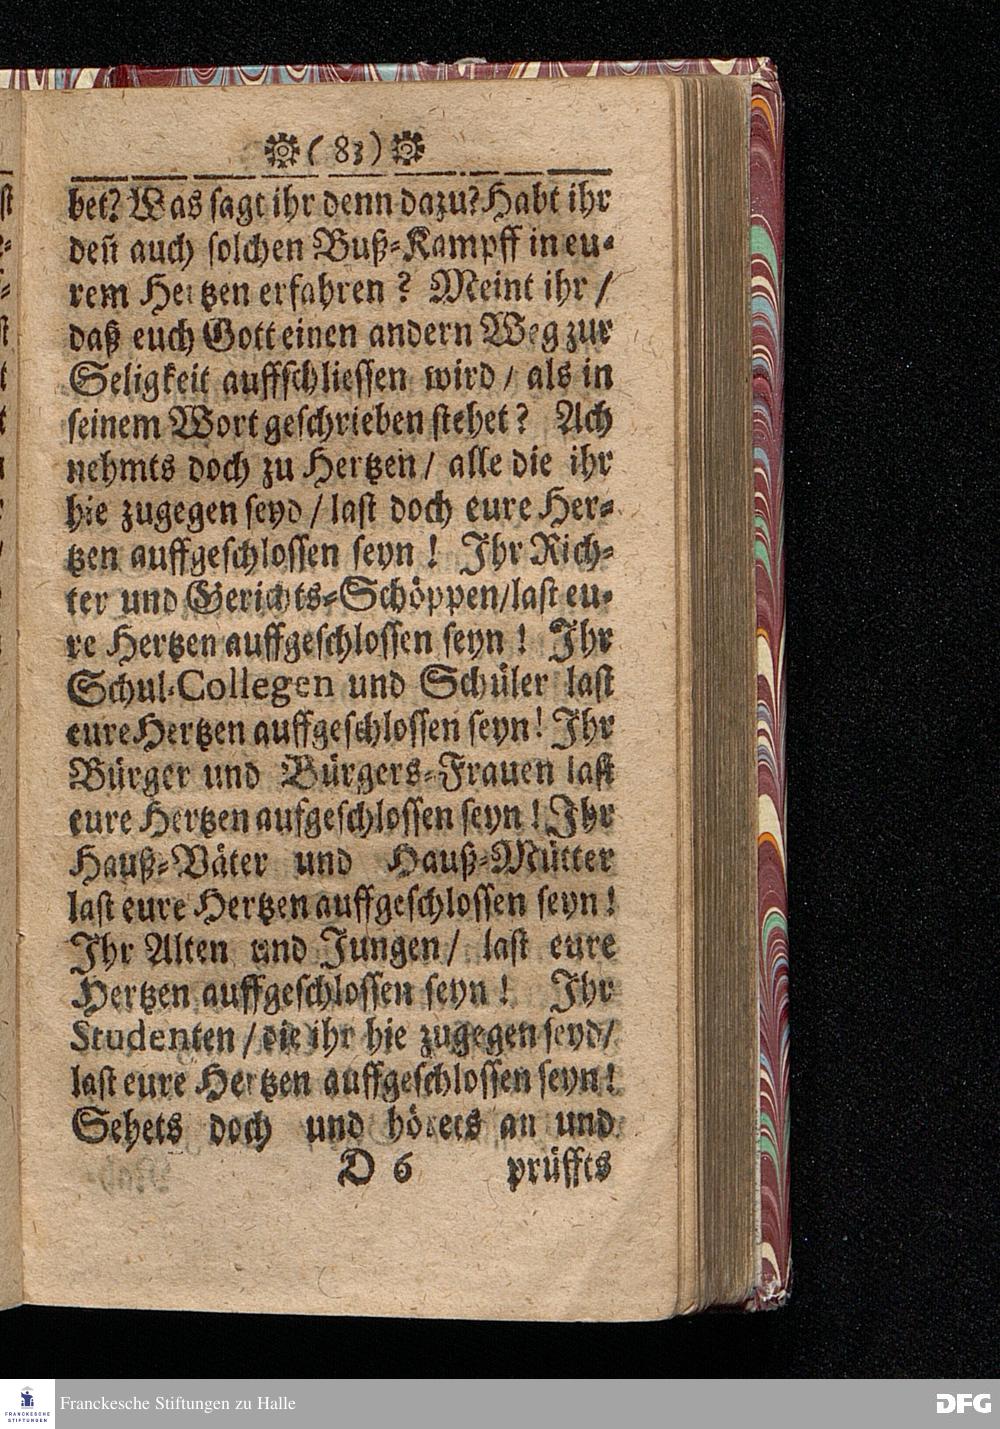 ( 83 )
bet? Was sagt ihr denn dazu? Habt ihr
deñ auch solchen Buß-Kampff in eu-
rem Hertzen erfahren? Meint ihr /
daß euch Gott einen andern Weg zur
Seligkeit auffschliessen wird / als in
seinem Wort geschrieben stehet? Ach
nehmts doch zu Hertzen / alle die ihr
hie zugegen seyd / last doch eure Her-
tzen auffgeschlossen seyn! Ihr Rich-
ter und Gerichts-Schöppen/last eu-
re Hertzen auffgeschlossen seyn! Ihr
Schul-Collegen und Schüler last
eure Hertzen auffgeschlossen seyn! Ihr
Bürger und Bürgers-Frauen last
eure Hertzen aufgeschlossen seyn! Ihr
Hauß-Väter und Hauß-Mütter
last eure Hertzen auffgeschlossen seyn!
Ihr Alten und Jungen / last eure
Hertzen auffgeschlossen seyn! Ihr
Studenten / die ihr hie zugegen seyd/
last eure Hertzen auffgeschlossen seyn!
Sehets doch und hörets an und
D 6 prüffts
FRANCKESCHE
STIFTUNGEN
Franckesche Stiftungen zu Halle
DFG